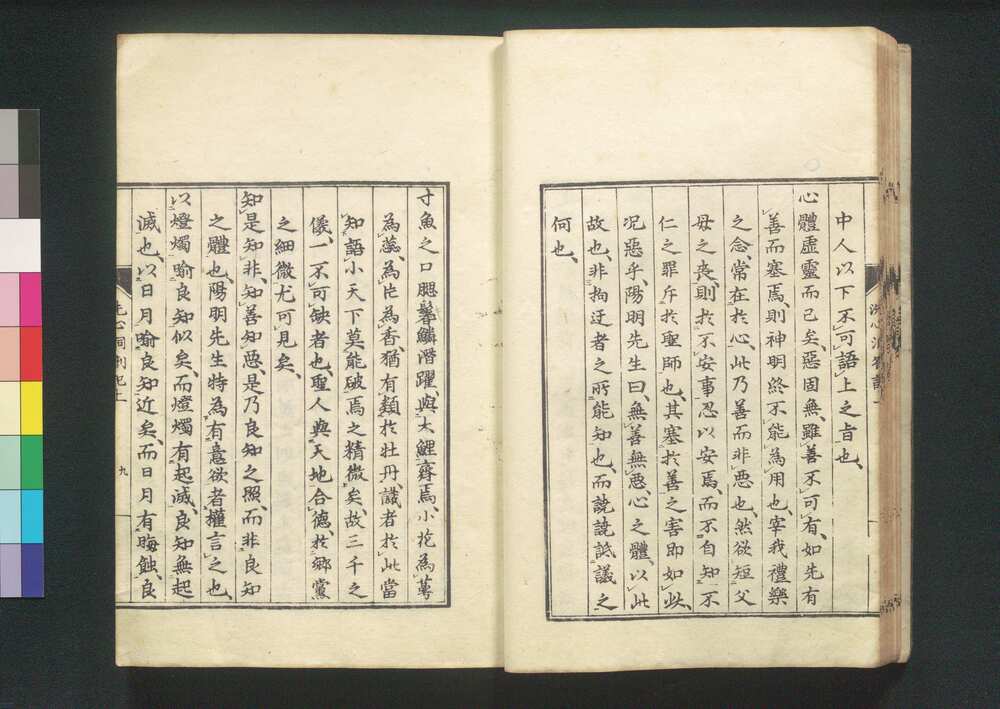 中人以下不可語上之旨也、
心體虛靈而已矣、惡固無、雖善不可有、如先有
善而塞焉、則神明終不能為用也、宰我禮樂
之念、常在於心、此乃善而非惡也、然欲短父
母之喪、則於不安事忍以安焉、而不自知不
仁之罪斥於聖師也、其塞於善之害即如此、
況惡乎、陽明先生曰、無善無惡心之體、以此
故也、非拘迂者之所能知也、而譊譊詆議之
何也、
寸魚之口腮鬐鱗潛躍、與大鯉齊焉、小花為萼
為蕊、為片為香、猶有類於牡丹、識者於此當
知語小天下莫能破焉之精微矣、故三千之
儀、一不可缺者也、聖人與天地合德、於鄉黨
之細微尤可見矣、
知是知非、知善知惡、是乃良知之照、而非良知
之體也、陽明先生特為有意欲者權言之也、
以燈燭喻良知似矣、而燈燭有起滅、良知無起
滅也、以日月喻良知近矣、而日月有晦蝕、良
洗心洞劄記上
九